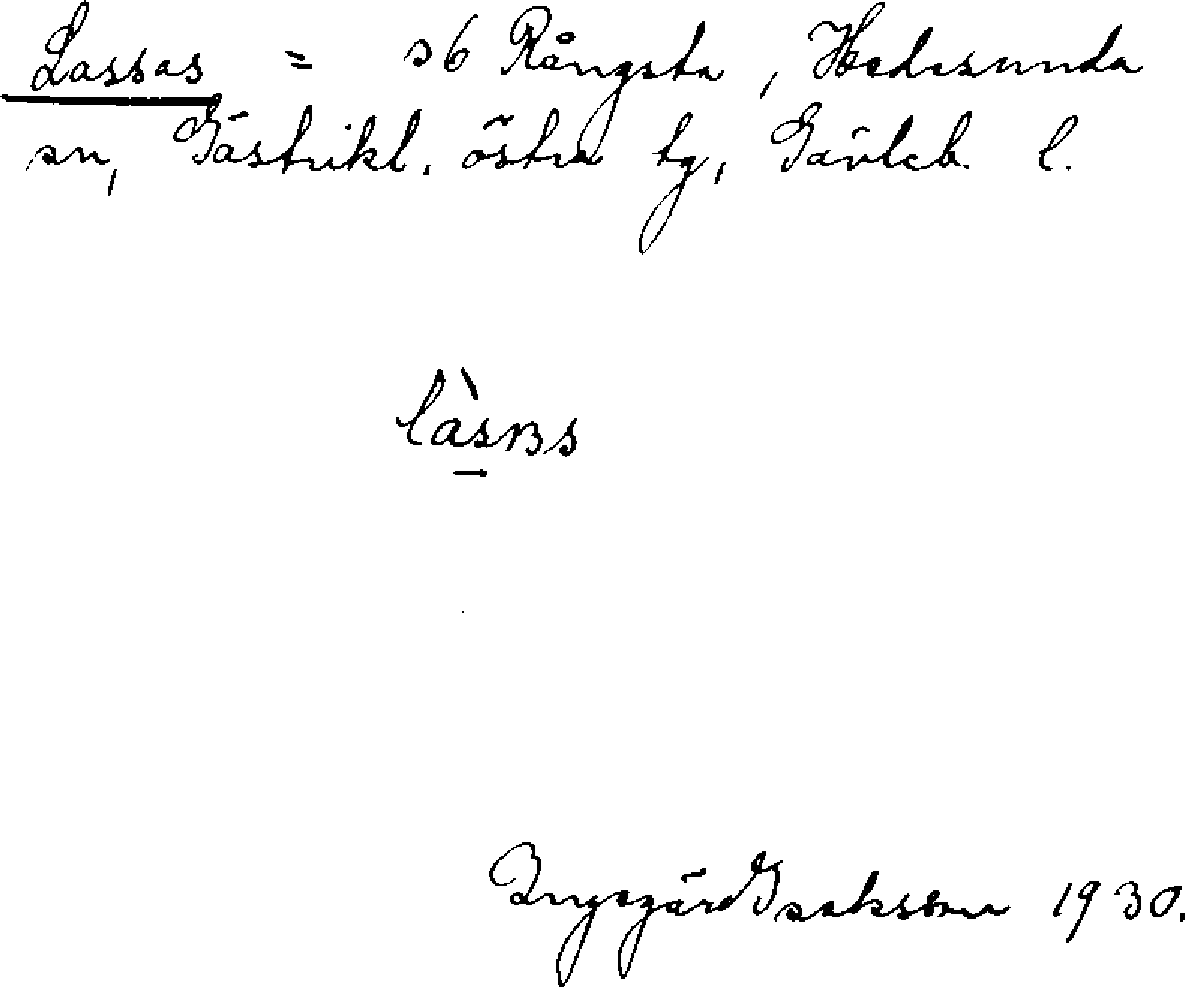 Lassas = 36 Rångsta, Hedesunda
sn, Gästrikl. östra tg, Gävleb. l.
làsʙs
Ingegärd Isaksson 1930.